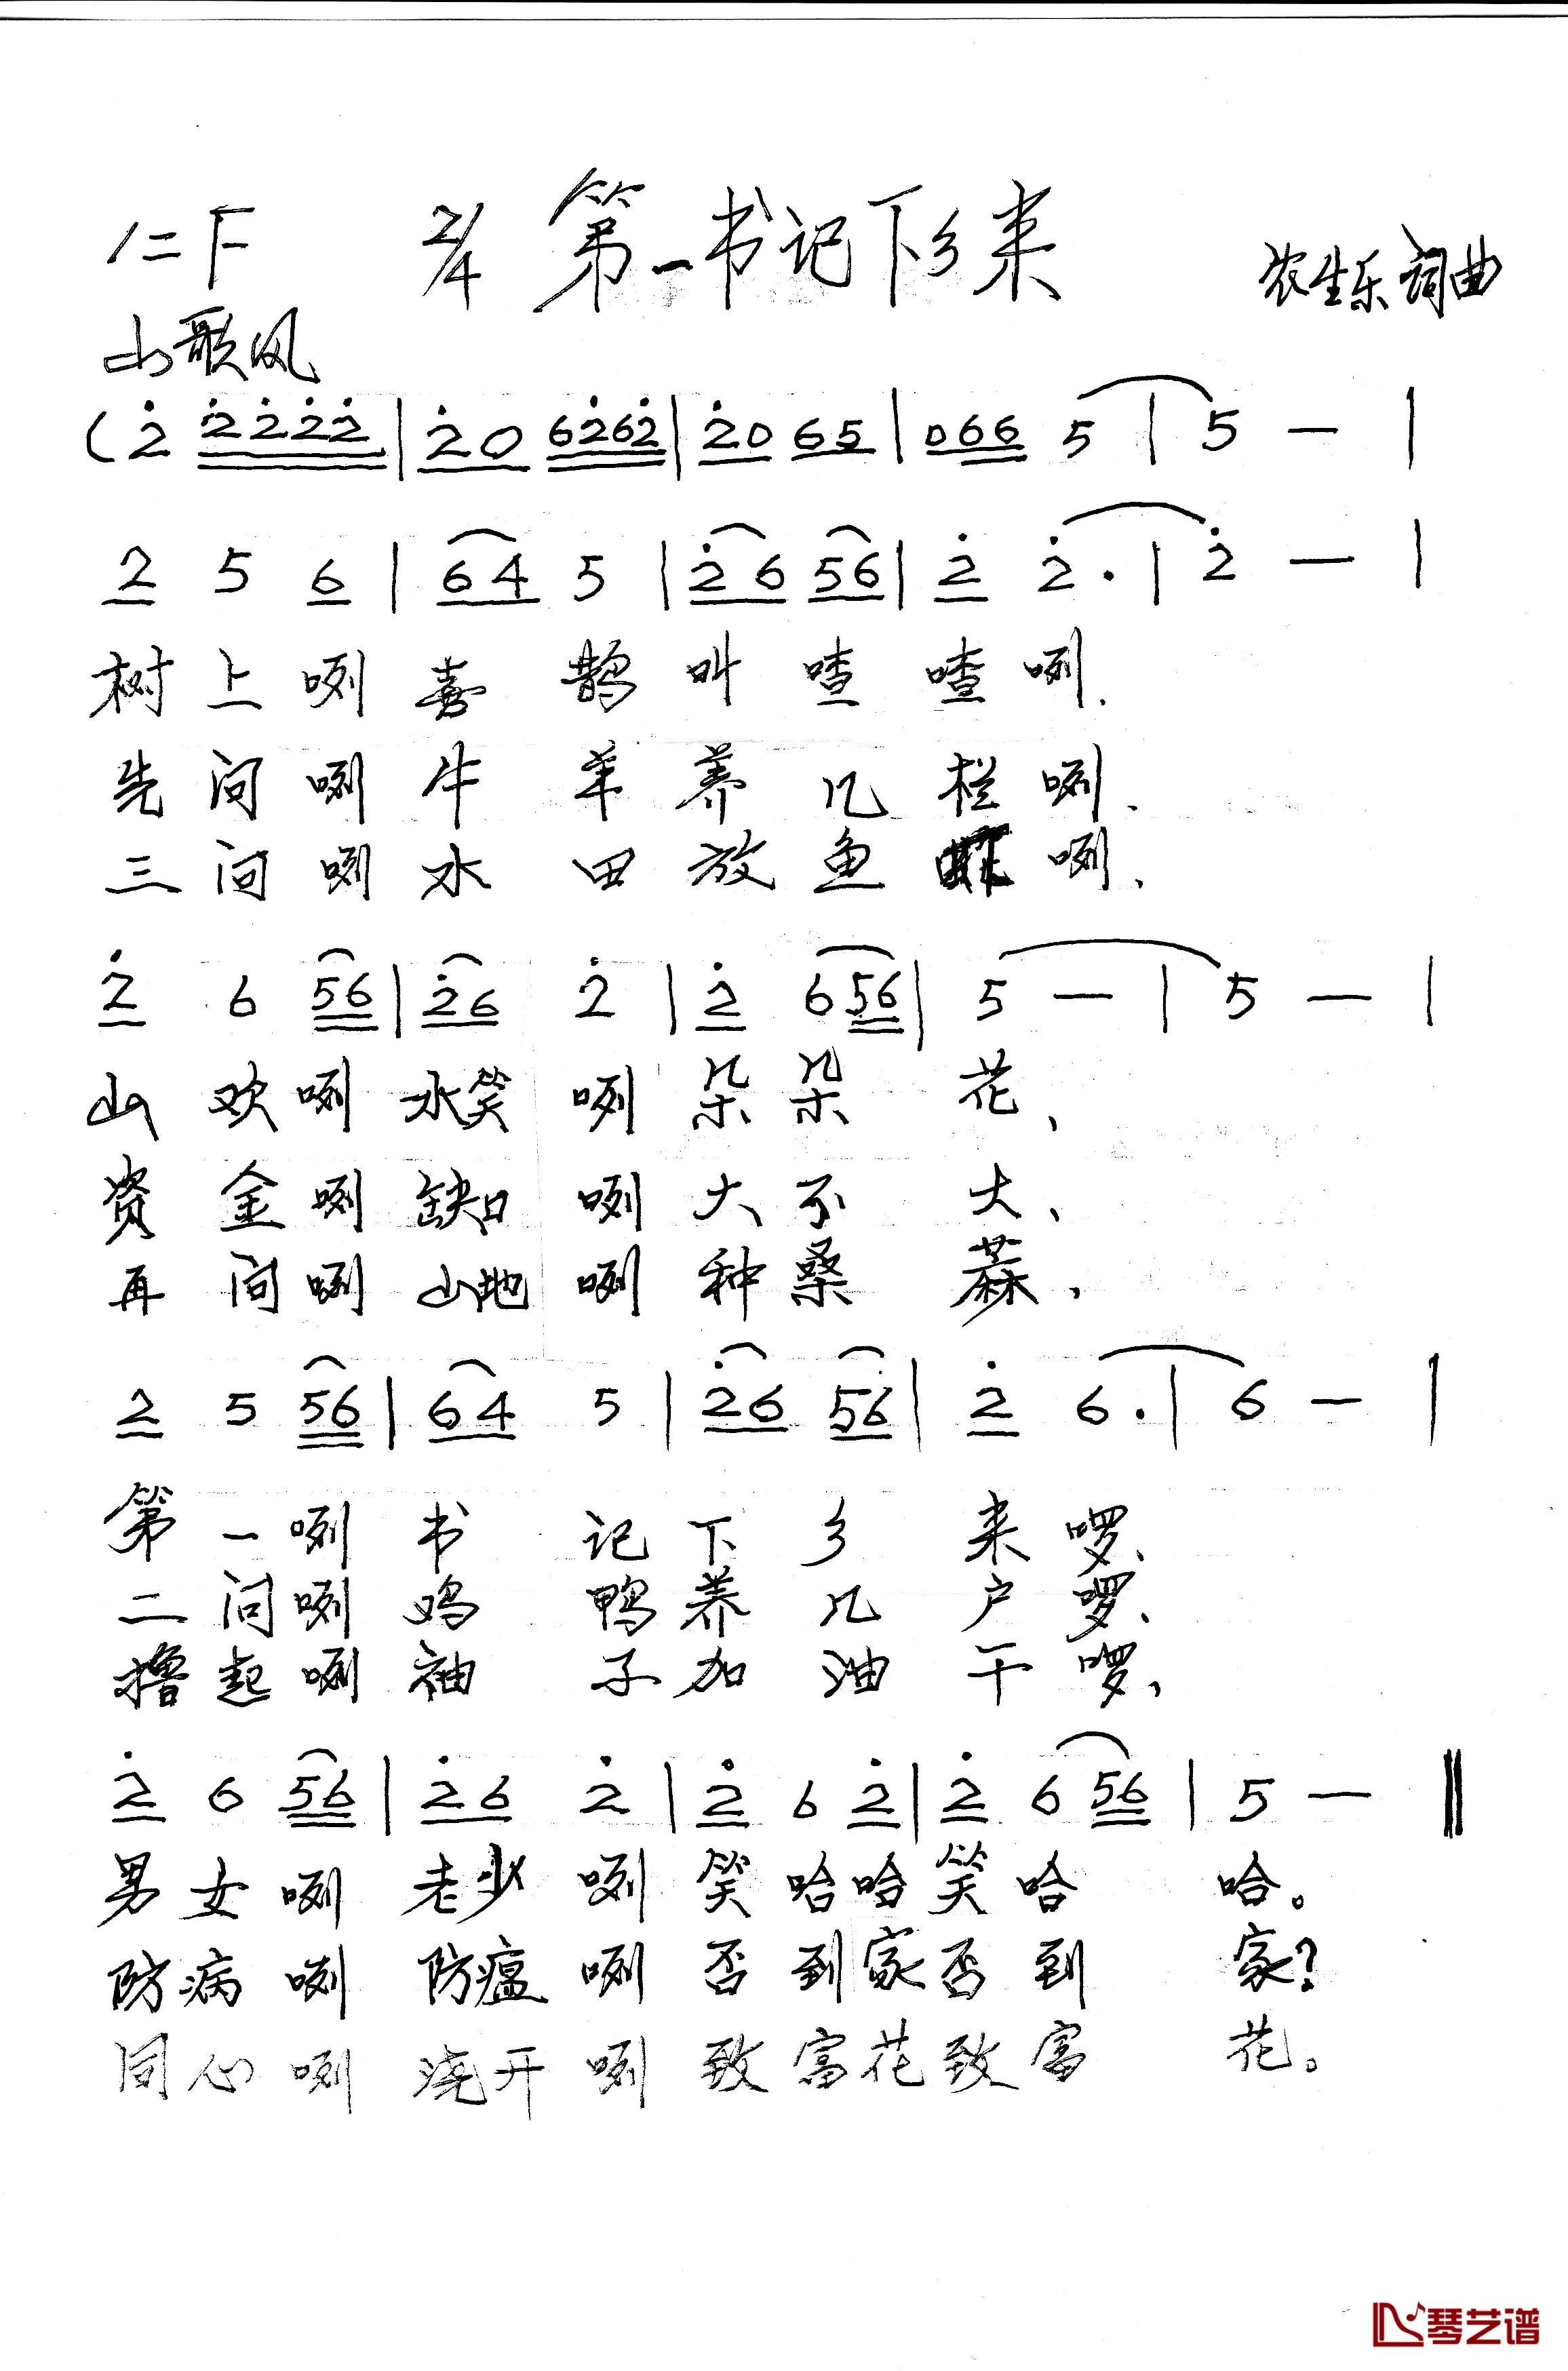 1=F 2/4 第一书记下乡来
农生乐 词曲
山歌风
(2̇ 2̇2̇2̇2̇ | 2̇0 62̇62̇ | 2̇0 65 | 066 5 | 5 — |
2 5 6 | 64 5 | 2̇6 56 | 2̇ 2̇. | 2̇ — |
树上咧喜鹊叫喳喳咧.
先问咧牛羊养几栏咧.
三问咧水田放鱼咧、
2̇ 6 56 | 2̇6 2̇ | 2̇ 656 | 5 — | 5 — |
山欢咧水笑咧朵朵花、
资金咧缺口咧大不大、
再问咧山地咧种桑蔴、
2 5 56 | 64 5 | 2̇6 56 | 2̇ 6. | 6 — |
第一咧书记下乡来啰、
二问咧鸡鸭养几户啰、
撸起咧袖子加油干啰、
2̇ 6 56 | 2̇6 2̇ | 2̇ 6 2̇ | 2̇ 6 56 | 5 — ‖
男女咧老少咧笑哈哈笑哈哈。
防病咧防瘟咧否到家否到家？
同心咧浇开咧致富花致富花。
琴艺谱